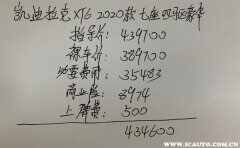 凯迪拉克XT6 2020款七座四驱豪华
指导价: 439700
裸车价: 389700
必要费用: 35483
商业险: 8974
上牌费: 500
434600